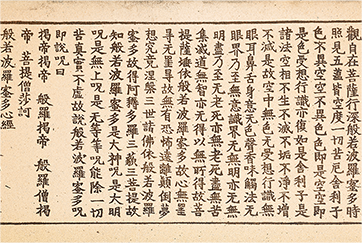 觀自在菩薩行深般若波羅蜜多時
照見五蘊皆空度一切苦厄舍利子
色不異空空不異色色即是空空即
是色受想行識亦復如是舍利子是
諸法空相不生不滅不垢不淨不增
不減是故空中无色无受想行識无
眼耳鼻舌身意无色聲香味觸法无
眼界乃至无意識界无无明亦无无
明盡乃至无老死亦无老死盡无苦
集滅道无智亦无得以无所得故菩
提薩埵依般若波羅蜜多故心无罣
礙无罣礙故无有恐怖遠離顛倒夢
想究竟涅槃三世諸佛依般若波羅
蜜多故得阿耨多羅三藐三菩提故
知般若波羅蜜多是大神呪是大明
呪是无上呪是无等等呪能除一切
苦真實不虛故說般若波羅蜜多呪
即說呪曰
揭帝揭帝 般羅揭帝 般羅僧揭
帝 菩提僧莎訶
般若波羅蜜多心經